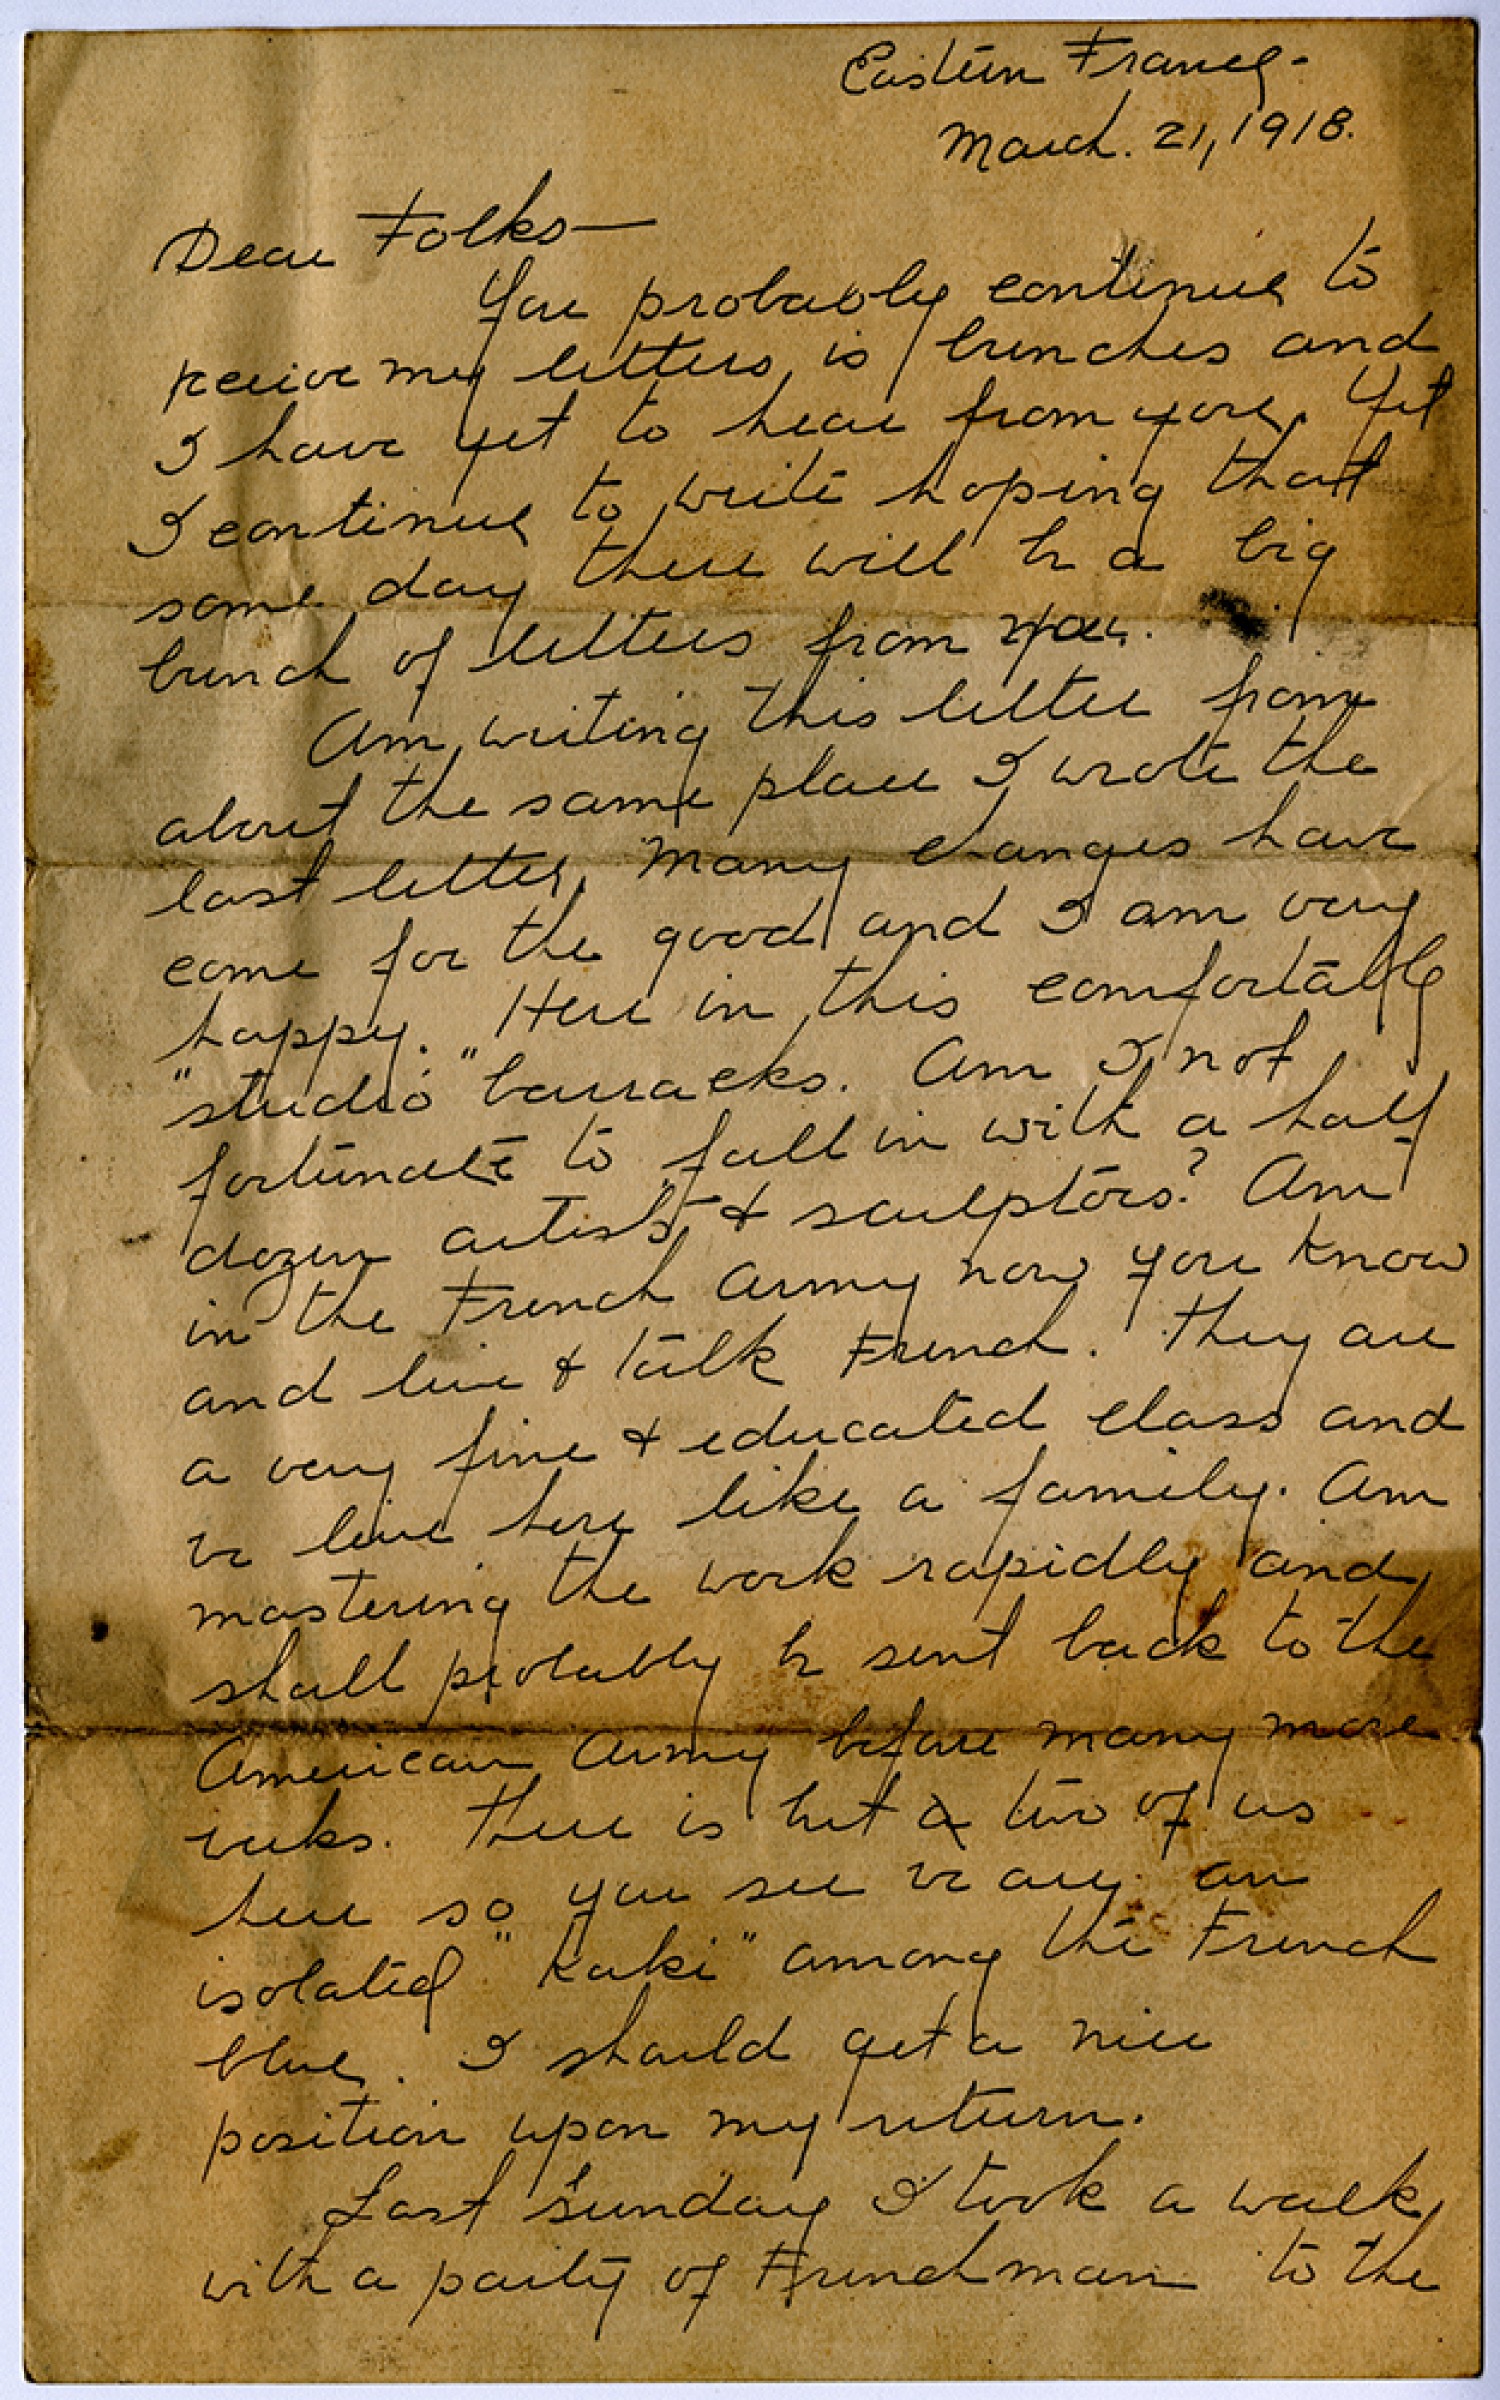 Eastern France-
March. 21, 1918.
Dear Folks—
You probably continue to
receive my letters is bunches and
I have yet to hear from you. Yet
I continue to write hoping that
some day there will be a big
bunch of letters from you.
Am writing this letter from
about the same place I wrote the
last letter. Many changes have
come for the good and I am very
happy. Here in this comfortable
"studio" barracks. Am I not
fortunate to fall in with a half
dozen artists & sculptors? Am
in the French Army now you know
and live & talk French. They are
a very fine & educated class and
we live here like a family. Am
mastering the work rapidly and
shall probably be sent back to the
American Army before many more
weeks. There is but two of us
here so you see we are an
isolated "Kaki" among the French
blue. I should get a nice
position upon my return.
Last Sunday I took a walk
with a party of Frenchman to the